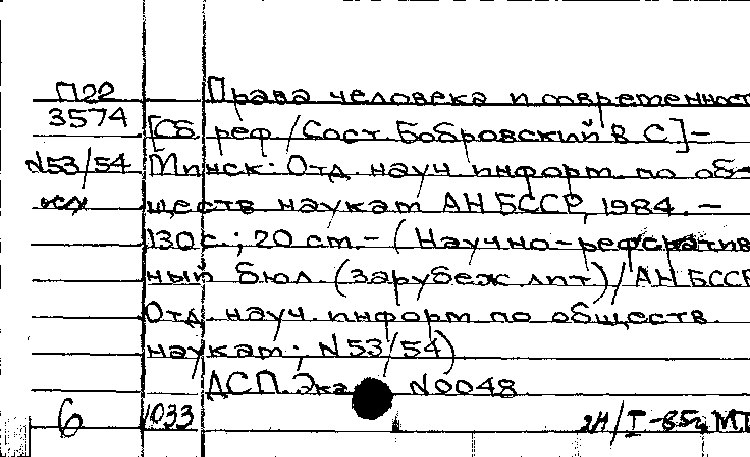 П22 Права человека и современност
3574 [Сб. реф. / Сост. Бобровский В. С.] -
N53/54 Минск: Отд. науч. информ. по об-
ществ. наукам АН БССР, 1984. -
130 с.; 20 см. - (Научно-рефератив
ный бюл. (зарубеж. лит.) / АН БССР
Отд. науч. информ. по обществ.
наукам; N53/54)
ДСП. Экз. N0048
6 1033 2Н/I-85г. МТ